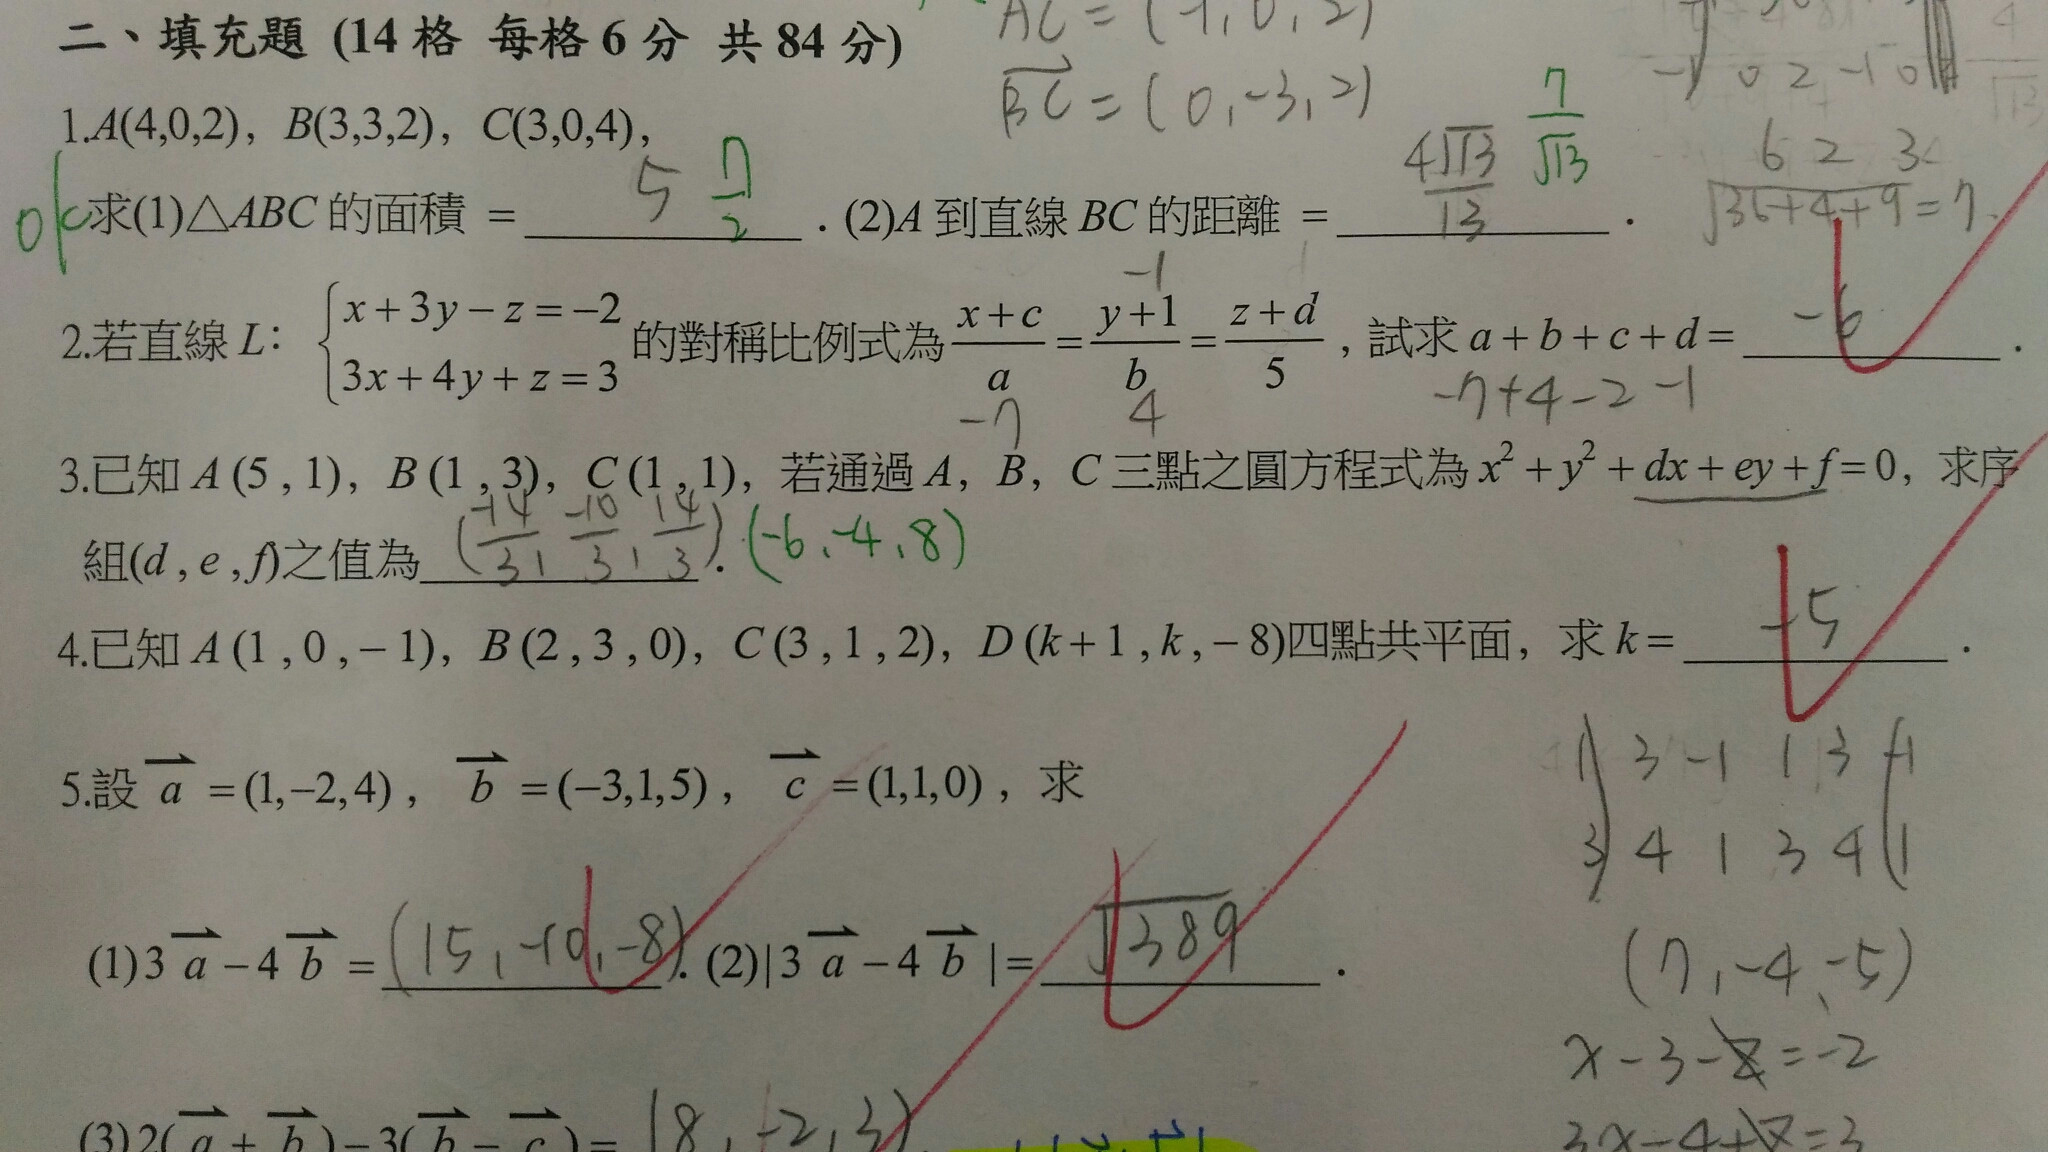 AC = (-1, 0, 2)
二、填充題 (14 格 每格 6 分 共 84 分)
BC = (0, -3, 2)
-1 0 2 -1 0
1.A(4,0,2), B(3,3,2), C(3,0,4),
6 2 3
√36+4+9 = 7
ok 求(1)△ABC 的面積 = 5 7/2 . (2)A 到直線 BC 的距離 = 4√13/13 7/√13 .
2.若直線 L: { x+3y−z=−2 3x+4y+z=3 的對稱比例式為 (x+c)/a = (y+1)/b = (z+d)/5 , 試求 a+b+c+d= -6 .
-1
-7 4 -7+4-2-1
3.已知 A (5 , 1), B (1 , 3), C (1 , 1), 若通過 A, B, C 三點之圓方程式為 x² + y² + dx + ey + f = 0, 求序
組(d , e , f)之值為 (-14/3, -10/3, 14/3) . (-6, -4, 8)
4.已知 A (1 , 0 , − 1), B (2 , 3 , 0), C (3 , 1 , 2), D (k + 1 , k , − 8)四點共平面, 求 k = -5 .
5.設 a = (1,−2,4) , b = (−3,1,5) , c = (1,1,0) , 求
1 3 -1 1 3 -1
3 4 1 3 4 1
(1) 3 a − 4 b = (15, -10, -8) . (2) | 3 a − 4 b | = √389 .
(7, -4, -5)
x-3-z=-2
3x-4+z=3
(3) 2( a + b ) − 3( b − c ) = (8, -2, 3) .